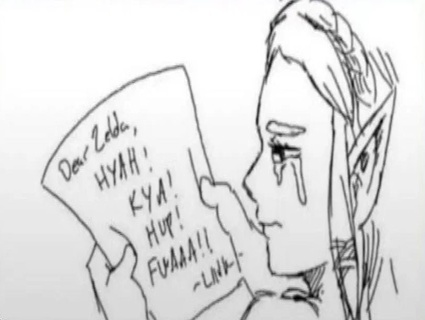 Dear Zelda,
HYAH!
KYA!
HUP!
FUAAA!!
-LINK-